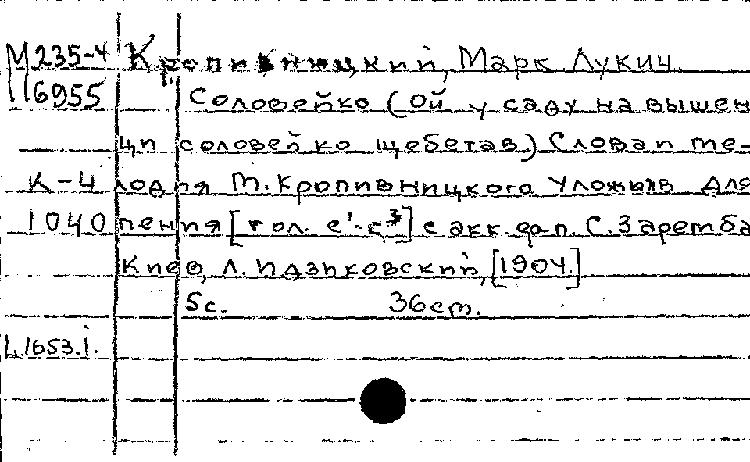 М235-4 Кропивницкий, Марк Лукич.
6955 Соловейко (Ой у саду на вышен
ци соловейко щебетав.) Слова и ме-
К-4 лодия М. Кропивницкого Уложыв для
1040 пения [гол. е'-с³] с акк. ф-п. С. Заремба
Киев, Л. Идзиковский, [1904.]
5с. 36ст.
L1653.1.